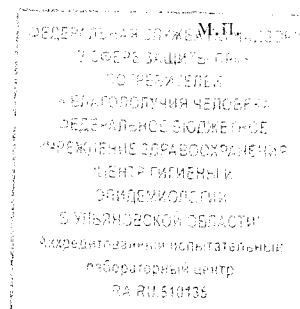 М.П.
ФЕДЕРАЛЬНАЯ СЛУЖБА ПО НАДЗОРУ
В СФЕРЕ ЗАЩИТЫ ПРАВ
ПОТРЕБИТЕЛЕЙ
И БЛАГОПОЛУЧИЯ ЧЕЛОВЕКА
ФЕДЕРАЛЬНОЕ БЮДЖЕТНОЕ
УЧРЕЖДЕНИЕ ЗДРАВООХРАНЕНИЯ
"ЦЕНТР ГИГИЕНЫ И
ЭПИДЕМИОЛОГИИ
В УЛЬЯНОВСКОЙ ОБЛАСТИ"
Аккредитованный испытательный
лабораторный центр
RA.RU.510135